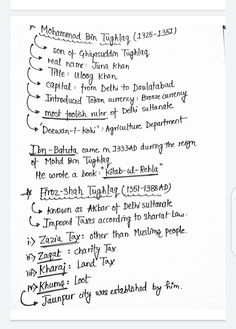 Mohammad Bin Tughlaq (1325-1351)
son of Ghiyasuddin Tughlaq
real name: Juna Khan
Title: Uloog Khan
capital: from Delhi to Daulatabad
Introduced Token currency: Bronze currency
most foolish ruler of Delhi sultanate
"Deewan-i-Kohi": Agriculture Department
Ibn-Batuta came in 1333AD during the reign
of Mohd Bin Tughlaq
He wrote a book: "Kitab-ul-Rehla"
Firoz-Shah Tughlaq (1351-1388AD)
Known as AKbar of Delhi sultanate
Imposed Taxes according to Shariat Law:
i> Zazia Tax: other than Muslim people.
ii> Zagat: charity Tax
iii> Kharaj: Land Tax
iv> Khums: Loot
Jaunpur city was established by him.